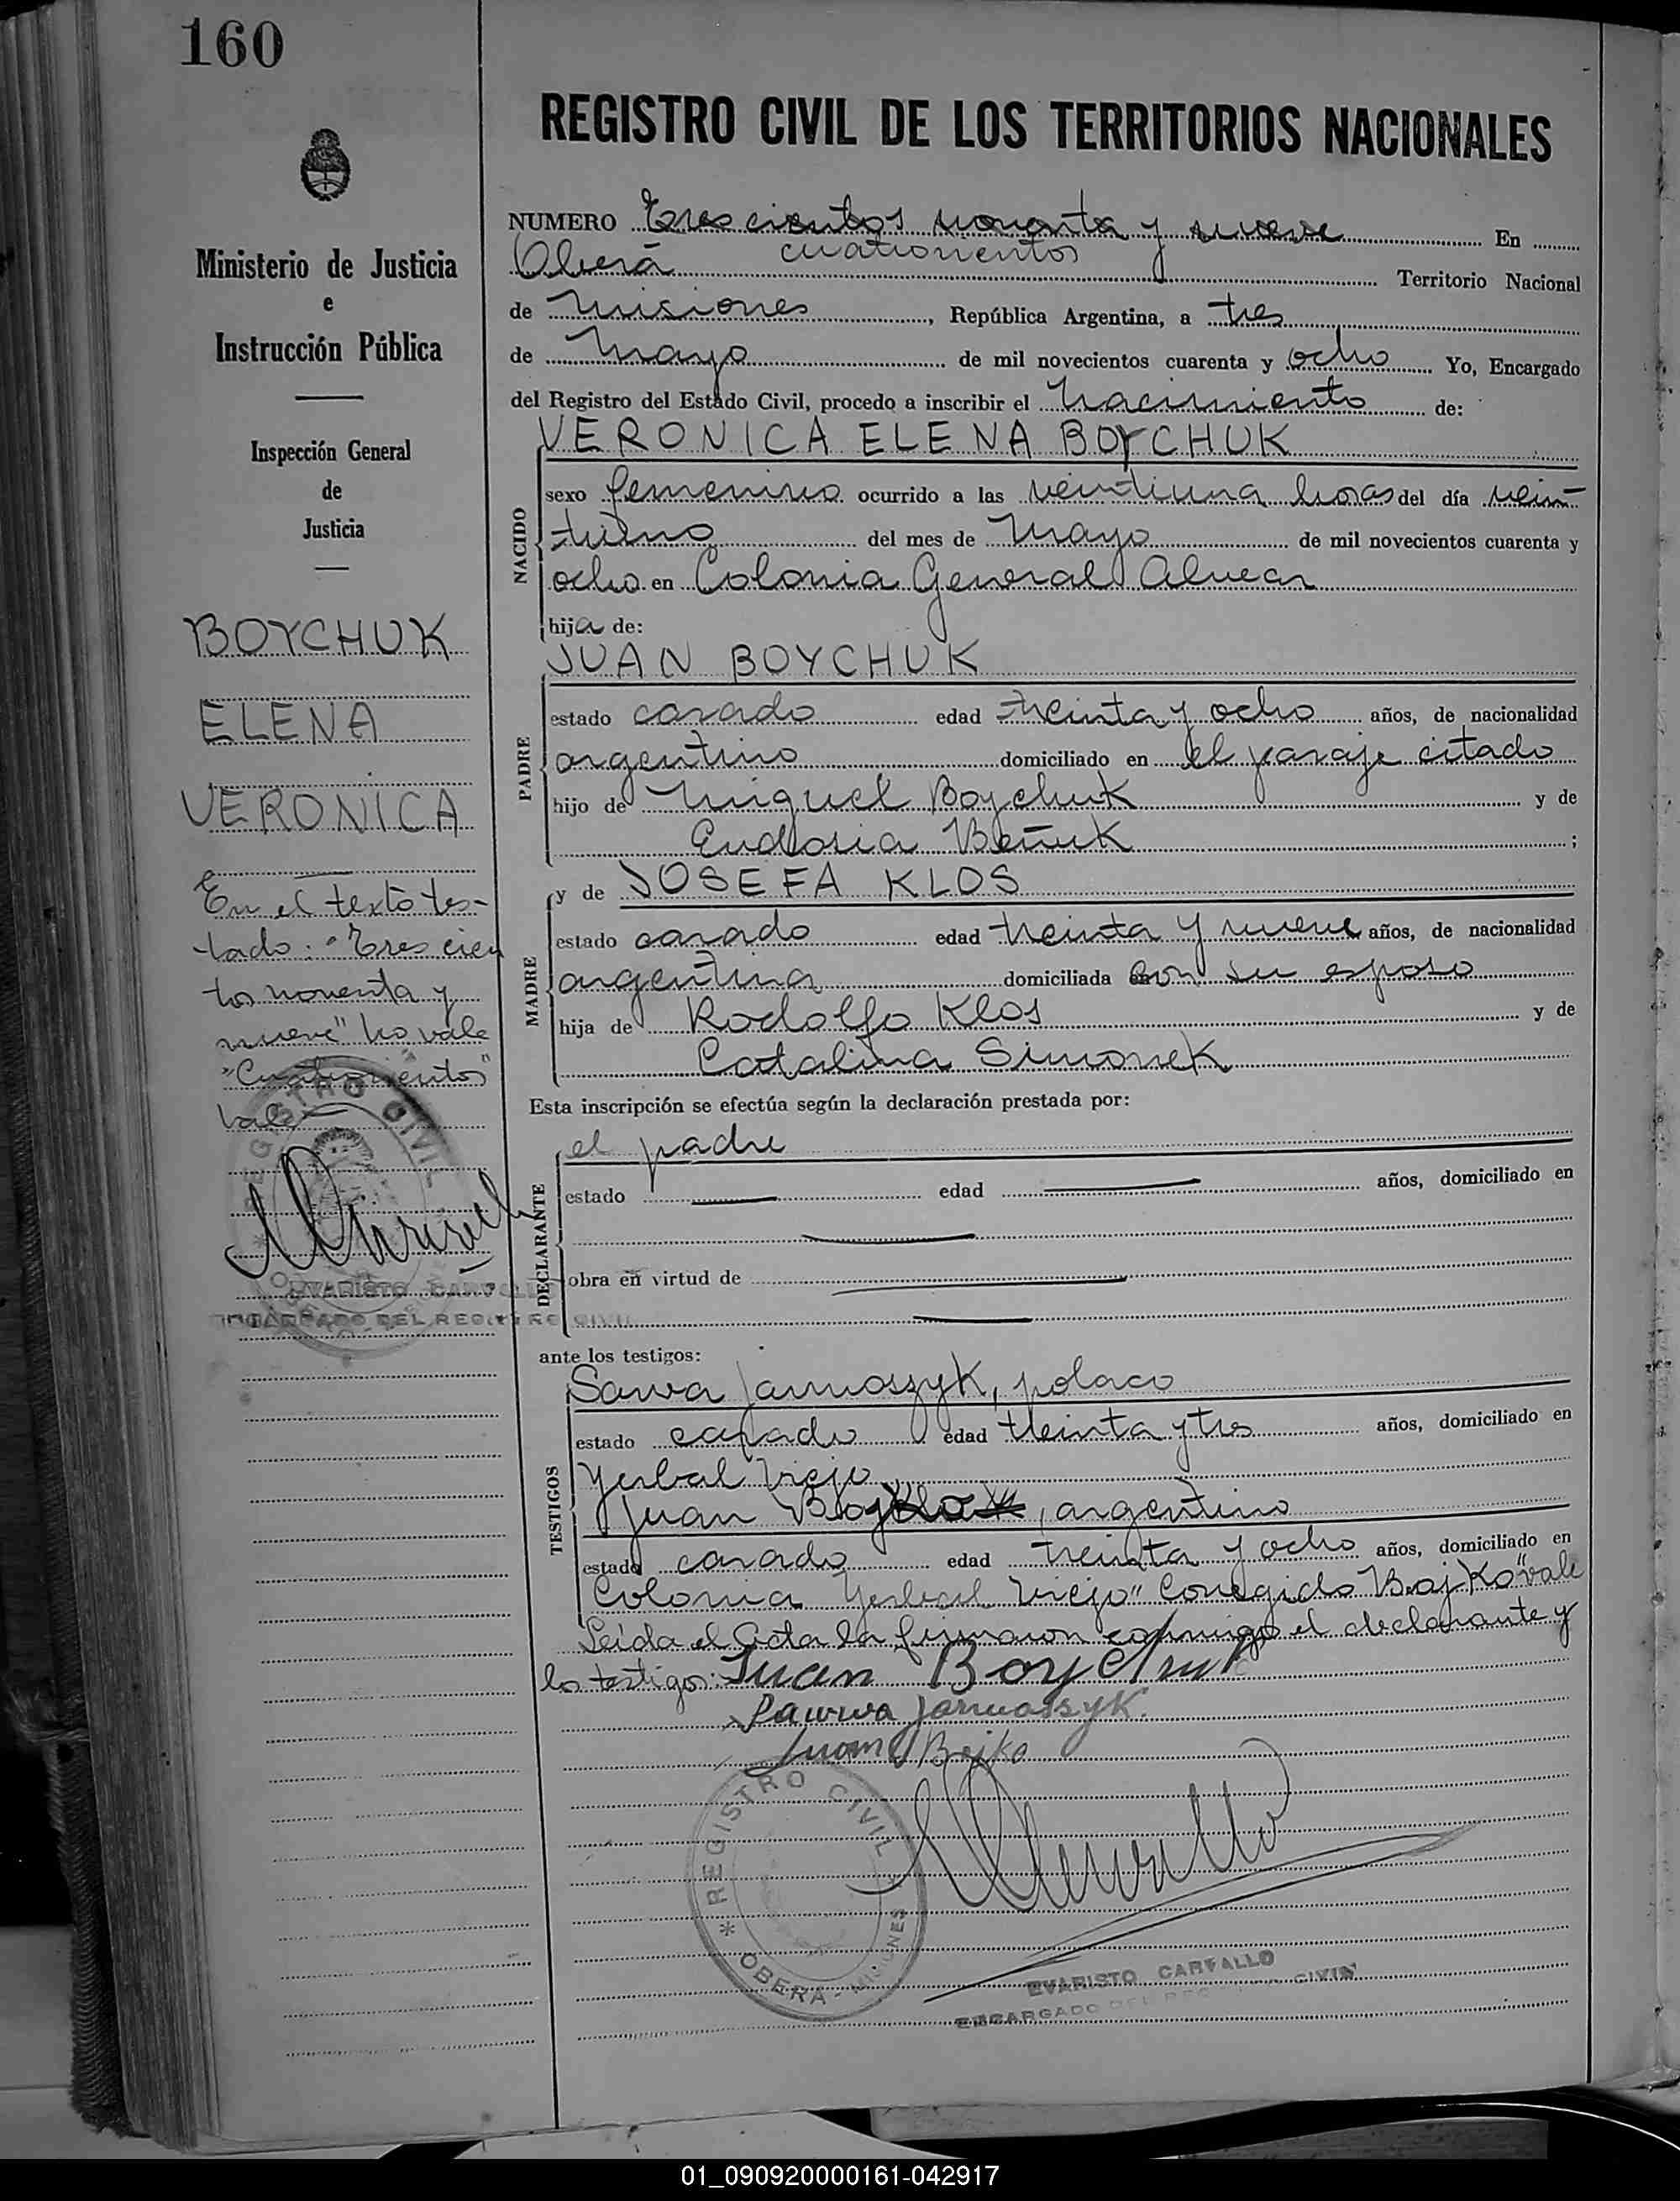 160
Ministerio de Justicia
e
Instrucción Pública
Inspección General
de
Justicia
BOYCHUK
ELENA
VERONICA
En el texto tes-
tado: "Tres cien
tos noventa y
nueve" no vale
"Cuatrocientos"
vale
REGISTRO CIVIL
EVARISTO CARVALLO
ENCARGADO DEL REGISTRO CIVIL
REGISTRO CIVIL DE LOS TERRITORIOS NACIONALES
NUMERO Tres cientos noventa y nueve En
cuatrocientos
Oberá Territorio Nacional
de Misiones, República Argentina, a tres
de Mayo de mil novecientos cuarenta y ocho Yo, Encargado
del Registro del Estado Civil, procedo a inscribir el Nacimiento de:
VERONICA ELENA BOYCHUK
NACIDO
sexo femenino ocurrido a las veintiuna horas del día vein-
tiuno del mes de Mayo de mil novecientos cuarenta y
ocho en Colonia General Alvear
hija de:
JUAN BOYCHUK
PADRE
estado casado edad treinta y ocho años, de nacionalidad
argentino domiciliado en el paraje citado
hijo de Miguel Boychuk y de
Eudosia ;
y de JOSEFA KLOS
MADRE
estado casado edad treinta y nueve años, de nacionalidad
argentina domiciliada con su esposo
hija de Rodolfo Klos y de
Catalina Simonek
Esta inscripción se efectúa según la declaración prestada por:
el padre
DECLARANTE
estado edad años, domiciliado en
obra en virtud de
ante los testigos:
Sawa Jarmoszyk, polaco
TESTIGOS
estado casado edad treinta y tres años, domiciliado en
Yerbal Viejo
Juan , argentino
estado casado edad treinta y ocho años, domiciliado en
Colonia Yerbal Viejo" Corregido "Bajko" vale
Leida el Acta la firmaron conmigo el declarante y
los testigos: Juan Boychuk
Sawwa Jarmoszyk.
Juan Bojko
REGISTRO CIVIL
* OBERA - MISIONES
EVARISTO CARVALLO
ENCARGADO DEL REGISTRO CIVIL
01_090920000161-042917